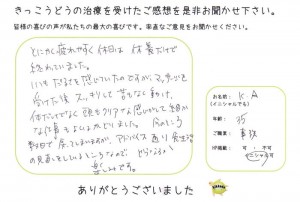 きっこうどうの治療を受けたご感想を是非お聞かせ下さい。
皆様の喜びの声が私たちの最大の喜びです。率直なご意見をお聞かせください。
とにかく疲れやすく休日は休養だけで
終わっていました。
いつもだるさを感じていたのですが、マッサージを
受けた後スッキリして苦もなく動け、
体だけでなく頭もクリアな感じがして細か
な仕事も
戻っていますが、アドバイス通り食生活
の見直しをしているところなので、どうなるか
楽しみです。
お名前: K.A
(イニシャルでも)
年齢: 35
ご職業: 事務
HP掲載: 可・不可
イニシャル可
ありがとうございました